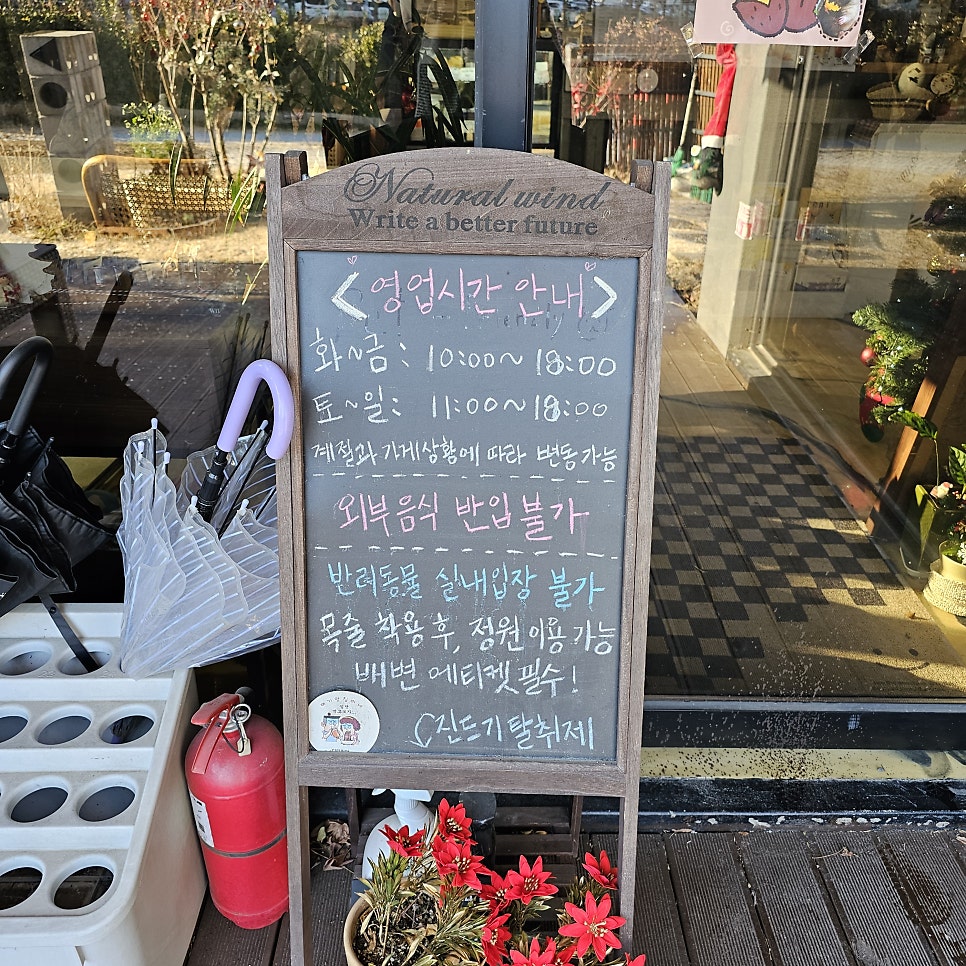 Natural wind
Write a better future
<영업시간 안내>
화~금: 10:00~18:00
토~일: 11:00~18:00
계절과 가게상황에 따라 변동가능
외부음식 반입불가
반려동물 실내입장 불가
목줄 착용 후, 정원이용가능
배변 에티켓필수!
진드기탈취제